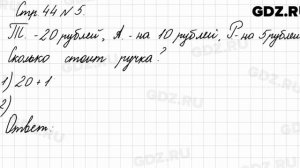 GDZ.RU
Стр. 44 N 5.
Т. -20 рублей, А - на 10 рублей, Р- на 5 рублей
Сколько стоит ручка?
1) 20+1
2)
Ответ:
GDZ.RU